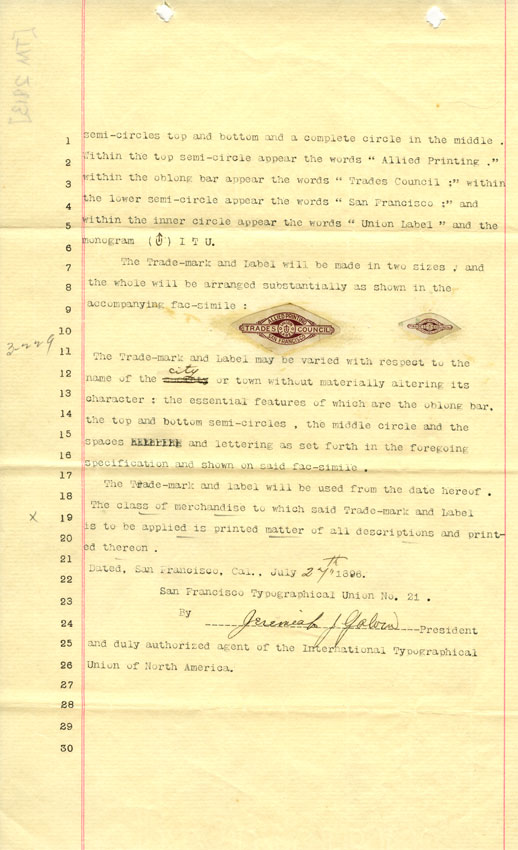 [TM 2813]
1 semi-circles top and bottom and a complete circle in the middle .
2 Within the top semi-circle appear the words “ Allied Printing .”
3 within the oblong bar appear the words “ Trades Council ;” within
4 the lower semi-circle appear the words “ San Francisco ;” and
5 within the inner circle appear the words “ Union Label ” and the
6 monogram ( ) I T U.
7 The Trade-mark and Label will be made in two sizes , and
8 the whole will be arranged substantially as shown in the
9 accompanying fac-simile :
ALLIED PRINTING
TRADES COUNCIL
SAN FRANCISCO
10
3-229
11 The Trade-mark and Label may be varied with respect to the
city
12 name of the or town without materially altering its
13 character : the essential features of which are the oblong bar,
14 the top and bottom semi-circles , the middle circle and the
15 spaces and lettering as set forth in the foregoing
16 specification and shown on said fac-simile .
17 The Trade-mark and label will be used from the date hereof .
18 The class of merchandise to which said Trade-mark and Label
x 19 is to be applied is printed matter of all descriptions and print-
20 ed thereon .
21 Dated, San Francisco, Cal., July 27th 1896.
22 San Francisco Typographical Union No. 21 .
23 By
24 Jeremiah J Galvin President
25 and duly authorized agent of the International Typographical
26 Union of North America.
27
28
29
30